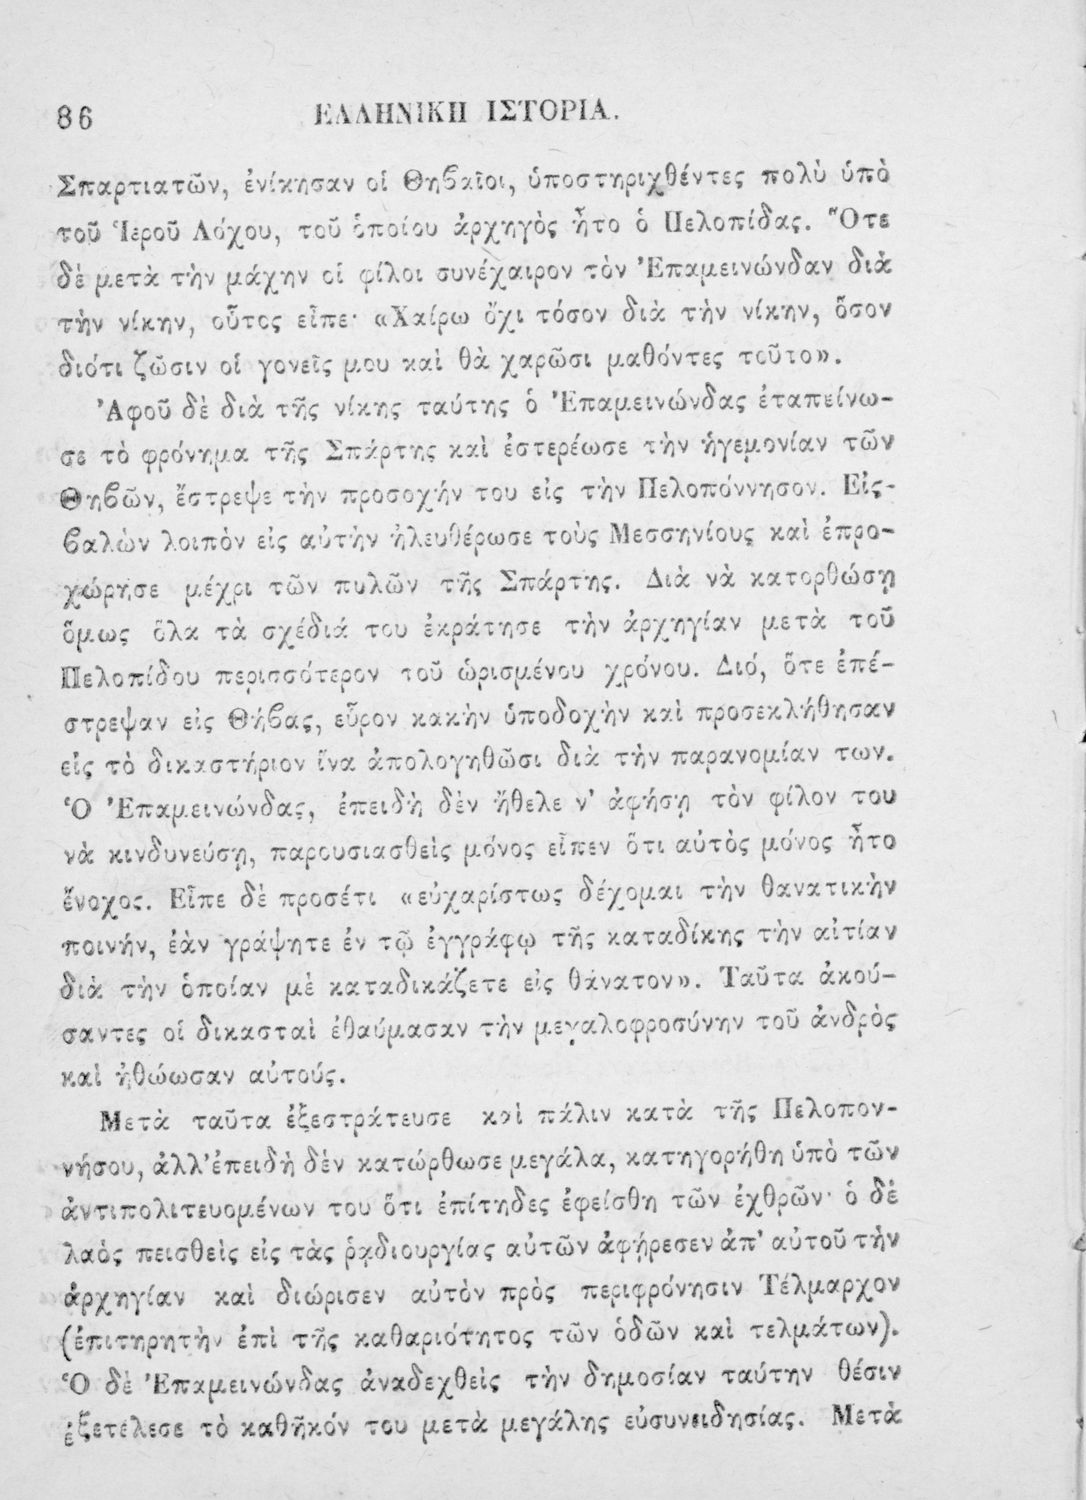 86 ΕΛΛΗΝΙΚΗ ΙΣΤΟΡΙΑ.
Σπαρτιατῶν, ἐνίκησαν οἱ Θηϐαῖοι, ὑποστηριχθέντες πολὺ ὑπὸ
τοῦ Ἱεροῦ Λόχου, τοῦ ὁποίου ἀρχηγὸς ἦτο ὁ Πελοπίδας. Ὅτε
δὲ μετὰ τὴν μάχην οἱ φίλοι συνέχαιρον τὸν Ἐπαμεινώνδαν διὰ
τὴν νίκην, οὗτος εἶπε· «Χαίρω ὄχι τόσον διὰ τὴν νίκην, ὅσον
διότι ζῶσιν οἱ γονεῖς μου καὶ θὰ χαρῶσι μαθόντες τοῦτο».
Ἀφοῦ δὲ διὰ τῆς νίκης ταύτης ὁ Ἐπαμεινώνδας ἐταπείνω-
σε τὸ φρόνημα τῆς Σπάρτης καὶ ἐστερέωσε τὴν ἡγεμονίαν τῶν
Θηϐῶν, ἔστρεψε τὴν προσοχήν του εἰς τὴν Πελοπόννησον. Εἰς-
ϐαλὼν λοιπὸν εἰς αὐτὴν ἠλευθέρωσε τοὺς Μεσσηνίους καὶ ἐπρο-
χώρησε μέχρι τῶν πυλῶν τῆς Σπάρτης. Διὰ νὰ κατορθώσῃ
ὅμως ὅλα τὰ σχέδιά του ἐκράτησε τὴν ἀρχηγίαν μετὰ τοῦ
Πελοπίδου περισσότερον τοῦ ὡρισμένου χρόνου. Διό, ὅτε ἐπέ-
στρεψαν εἰς Θήϐας, εὗρον κακὴν ὑποδοχὴν καὶ προσεκλήθησαν
εἰς τὸ δικαστήριον ἵνα ἀπολογηθῶσι διὰ τὴν παρανομίαν των.
Ὁ Ἐπαμεινώνδας, ἐπειδὴ δὲν ἤθελε ν' ἀφήσῃ τὸν φίλον του
νὰ κινδυνεύσῃ, παρουσιασθεὶς μόνος εἶπεν ὅτι αὐτὸς μόνος ἦτο
ἔνοχος. Εἶπε δὲ προσέτι «εὐχαρίστως δέχομαι τὴν θανατικὴν
ποινήν, ἐὰν γράψητε ἐν τῷ ἐγγράφῳ τῆς καταδίκης τὴν αἰτίαν
διὰ τὴν ὁποίαν μὲ καταδικάζετε εἰς θάνατον». Ταῦτα ἀκού-
σαντες οἱ δικασταὶ ἐθαύμασαν τὴν μεγαλοφροσύνην τοῦ ἀνδρὸς
καὶ ἠθώωσαν αὐτούς.
Μετὰ ταῦτα ἐξεστράτευσε καὶ πάλιν κατὰ τῆς Πελοπον-
νήσου, ἀλλ' ἐπειδὴ δὲν κατώρθωσε μεγάλα, κατηγορήθη ὑπὸ τῶν
ἀντιπολιτευομένων του ὅτι ἐπίτηδες ἐφείσθη τῶν ἐχθρῶν· ὁ δὲ
λαὸς πεισθεὶς εἰς τὰς ῥᾳδιουργίας αὐτῶν ἀφῄρεσεν ἀπ' αὐτοῦ τὴν
ἀρχηγίαν καὶ διώρισεν αὐτὸν πρὸς περιφρόνησιν Τέλμαρχον
(ἐπιτηρητὴν ἐπὶ τῆς καθαριότητος τῶν ὁδῶν καὶ τελμάτων).
Ὁ δὲ Ἐπαμεινώνδας ἀναδεχθεὶς τὴν δημοσίαν ταύτην θέσιν
ἐξετέλεσε τὸ καθῆκόν του μετὰ μεγάλης εὐσυνειδησίας. Μετὰ